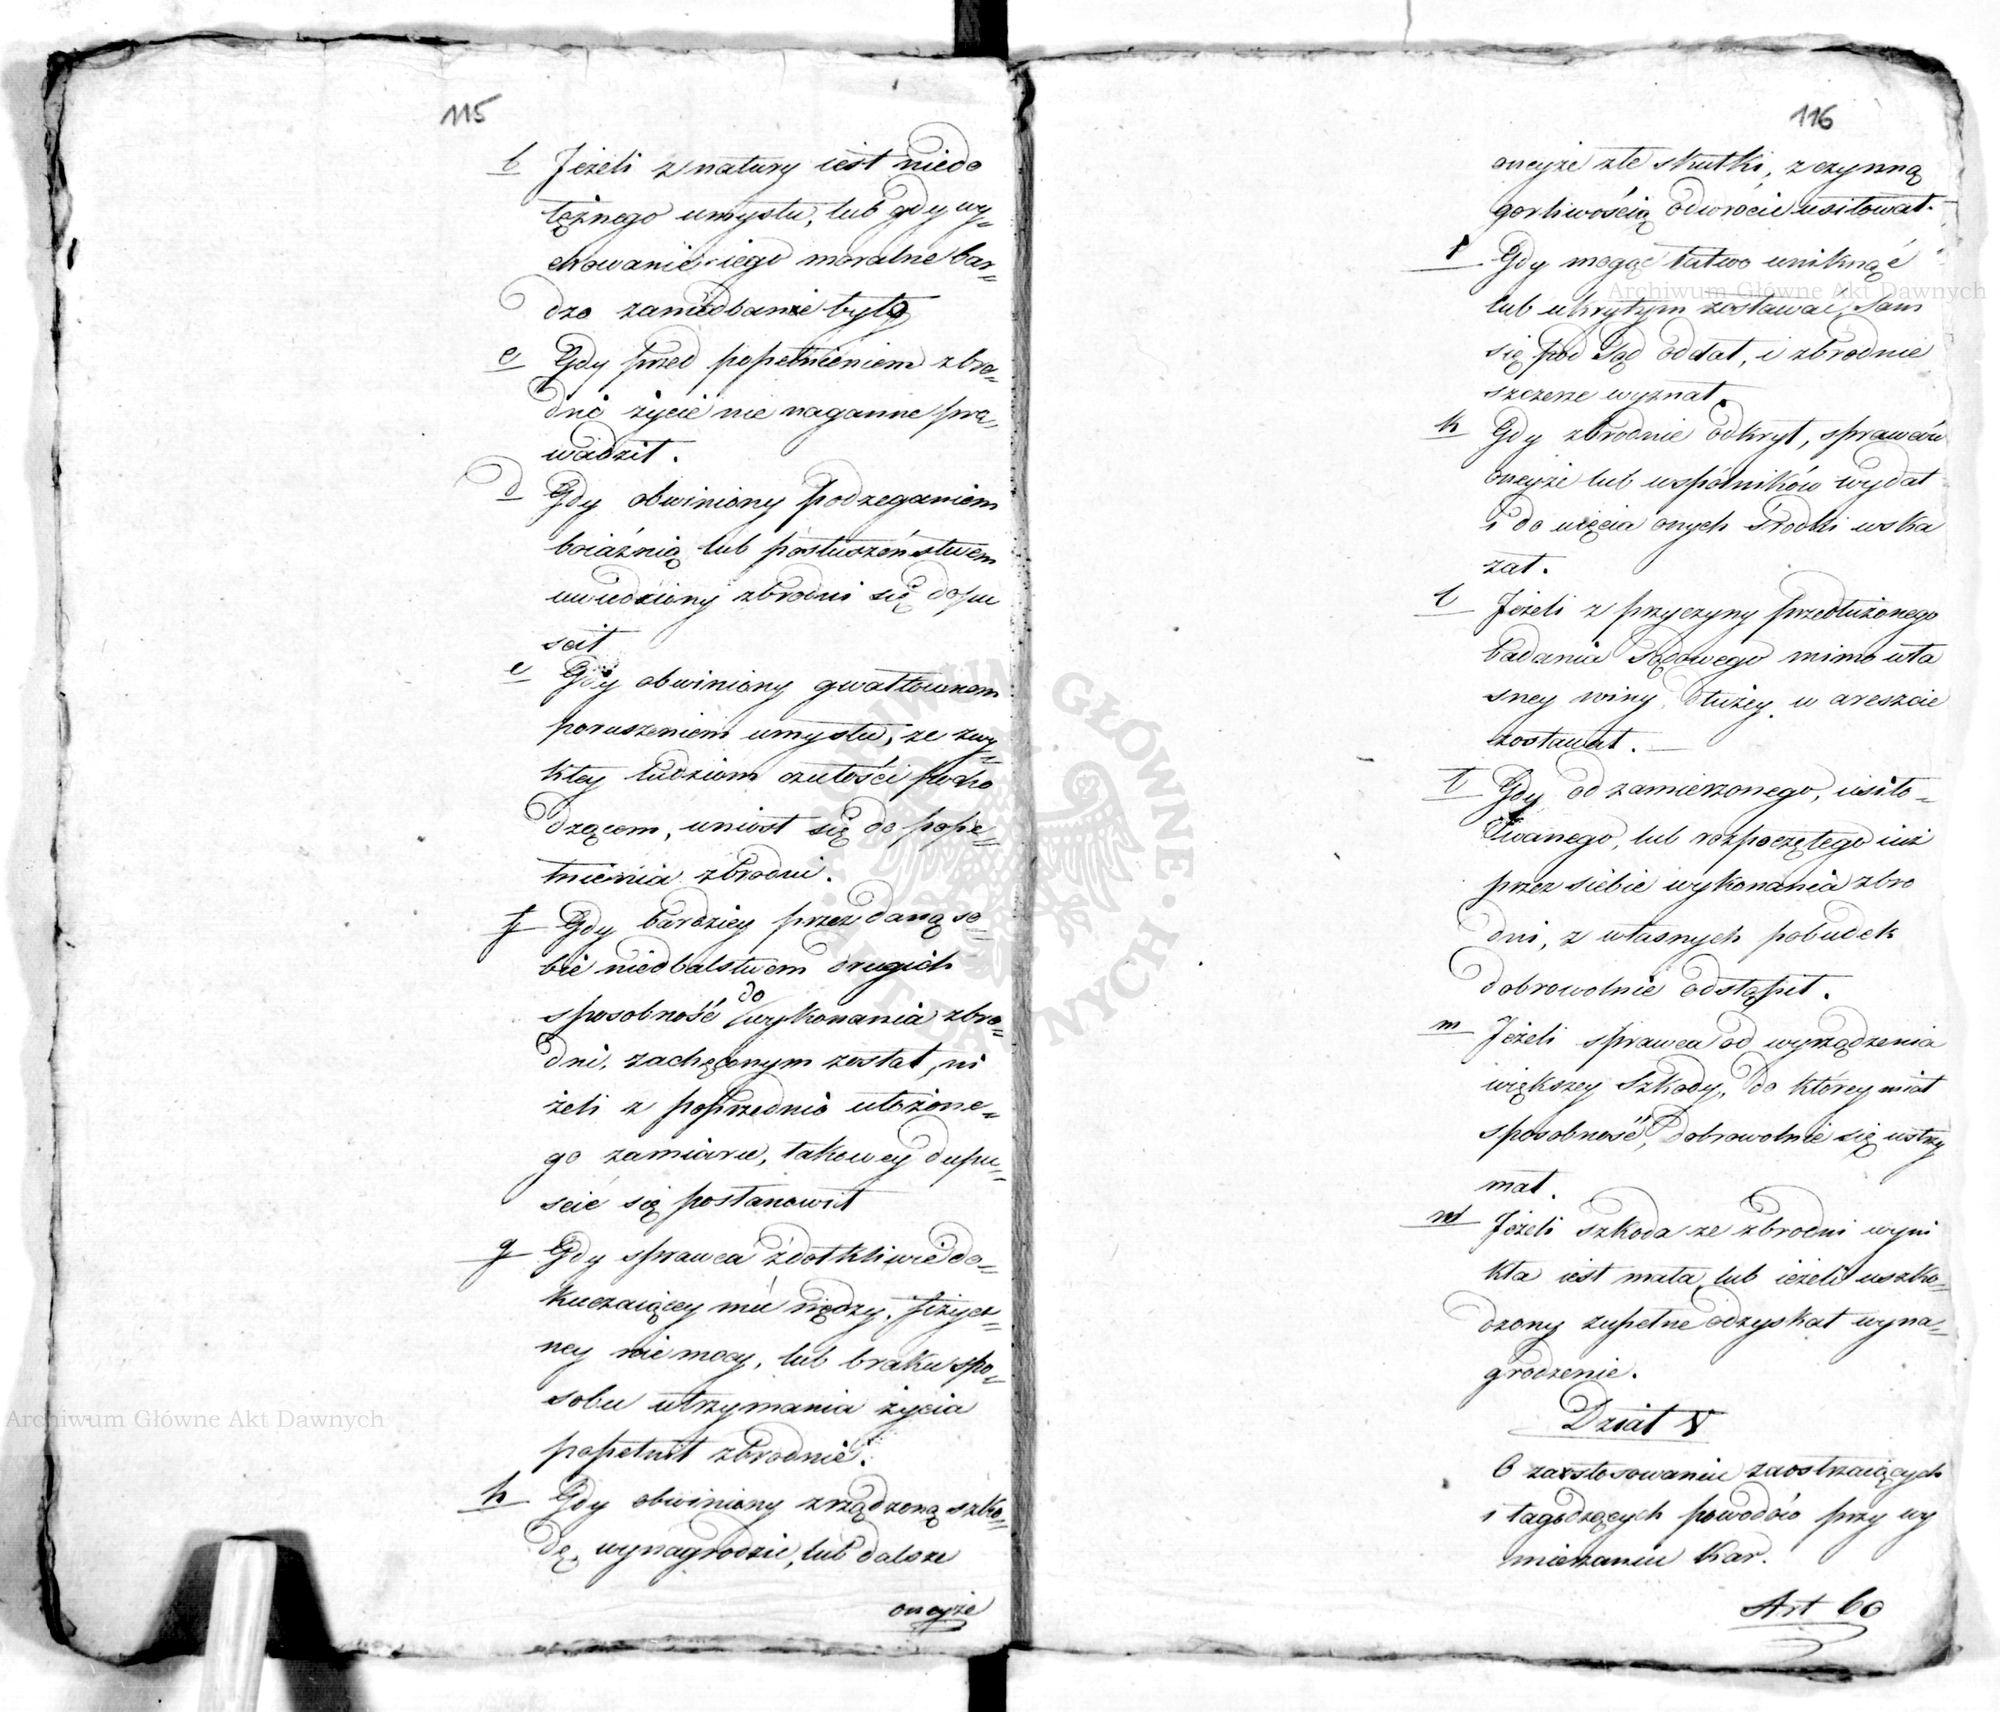 115
b Jeżeli z natury iest niedo
łężnego umysłu, lub gdy wy=
chowanie iego moralne bar=
dzo zaniedbanie było
c Gdy przed popełnieniem zbro=
dni życie nie naganne pro=
wadził.
d Gdy obwiniony podżeganiem
boiaźnią lub posłuszeństwem
uwiedziony zbrodni się dopu
scił
e Gdy obwiniony gwałtownem
poruszeniem umysłu, ze zwy=
kłey ludziom czułości pocho
dzącem, uniosł się do popeł=
łnienia zbrodni.
f Gdy bardziey przez daną so=
bie niedbalstwem drugich
do
sposobność wykonania zbro=
dni, zachęconym został, ni
żeli z poprzednio ułożone=
go zamiaru, takowey dopu=
scić się postanowił
g Gdy sprawca z dotkliwie do=
kuczaiącey mu nędzy, fizycz=
ney niemocy, lub braku spo=
sobu utrzymania życia
popełnił zbrodnie.
h Gdy obwiniony zrządzoną szko=
dę, wynagrodzić, lub dalsze
oneyże
116
oneyże złe skutki, z czynną
gorliwością odwrocić usiłował.
i Gdy mogąc łatwo uniknąć
lub ukrytym zostawać, sam
się pod sąd oddał, i zbrodnie
szczerze wyznał.
k Gdy zbrodnie odkrył, sprawców
oneyże lub wspólników wydał
i do uięcia onych środki wska
zał.
l Jeżeli z przyczyny przedłużonego
badania sądowego mimo wła
sney winy, dłużey w areszcie
zostawał.
ł Gdy od zamierzonego, usiło=
wanego, lub rozpoczętego iuż
przez siebie wykonania zbro
dni, z własnych pobudek
dobrowolnie odstąpił.
m Jeżeli sprawca od wyrządzenia
większey szkody, do którey miał
sposobność, dobrowolnie się wstrzy
mał.
n Jeżeli szkoda ze zbrodni wyni
kła iest mała, lub ieżeli uszko=
dzony zupełne odzyskał wyna=
grodzenie.
Dział V
O zastosowaniu zaostrzaiących
i łagodzących powodów przy wy
mierzaniu kar.
Art 60
Archiwum Główne Akt Dawnych
Archiwum Główne Akt Dawnych
ARCHIWUM GŁÓWNE AKT DAWNYCH